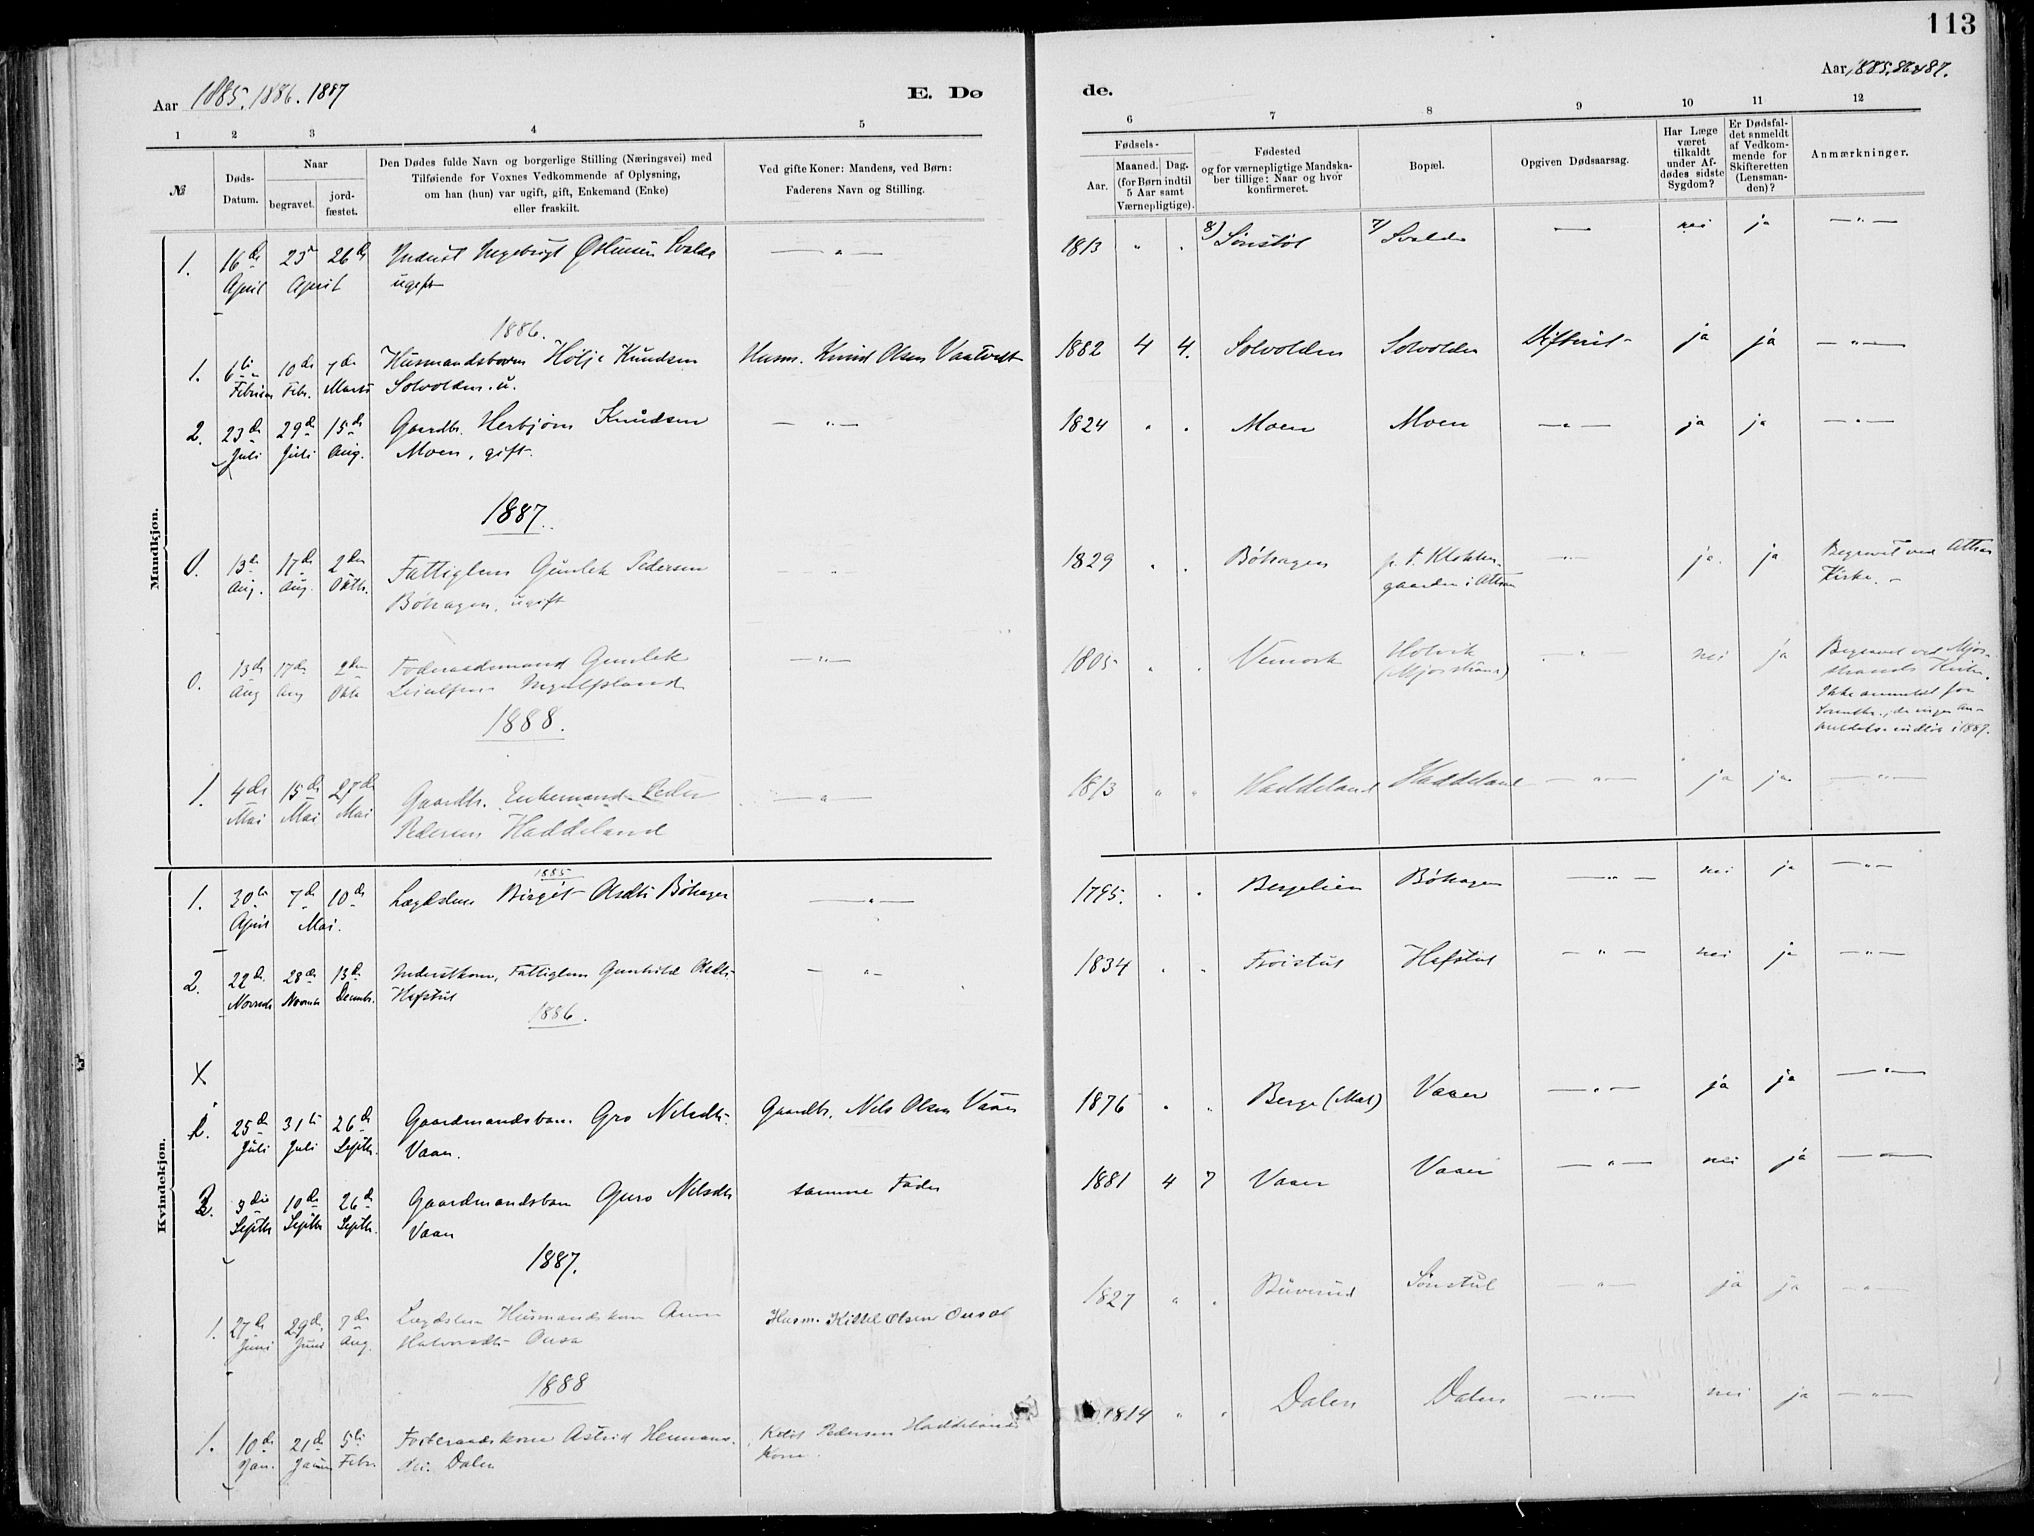 113
Aar 1885. 1886. 1887
E. Dø
de.
Aar 1885. 86 87.
1 2 3 4 5
6 7 8 9 10 11 12
№
Døds-
Datum.
Naar
begravet.
jord-
fæstet.
Den Dødes fulde Navn og borgerlige Stilling (Næringsvei) med
Tilføiende for Voxnes Vedkommende af Oplysning,
om han (hun) var ugift, gift, Enkemand (Enke)
eller fraskilt.
Ved gifte Koner: Mandens, ved Børn:
Faderens Navn og Stilling.
Fødsels-
Aar.
Maaned. Dag.
(for Børn indtil
5 Aar samt
Værnepligtige).
Fødested
og for værnepligtige Mandska-
ber tillige: Naar og hvor
konfirmeret.
Bopæl.
Opgiven Dødsaarsag.
Har Læge
været
tilkaldt
under Af-
dødes sidste
Sygdom?
Er Dødsfal-
det anmeldt
af Vedkom-
mende for
Skifteretten
(Lensman-
den)?
Anmærkninger.
Mandkjøn.
1. 16de 23de 26de Inderst Ingebrigt — " — 1813 " " 8) Sønstøl 7) — nei ja — " —
April April ugift
1886.
1. 6te 10de 7de Husmandsbarn Hølje Knudsen Husm. Knud Olsen Vaatvedt 1882 4 4. Solvolden Solvolden Difterit ja ja — " —
Febr. Marts Solvolden. u.
2. 23de 29de 15de Gaardbr. Herbjørn Knudsen — " — 1824 " " Moen Moen — " — ja ja — " —
Juli Juli Aug. Moen, gift.
1887.
0. 13de 17de 2den Fattiglem Gunlek Pedersen — " — 1829 " " Bøhagen p. t. Klokker- — " — ja ja Begravet ved Attraa
Aug. Aug. Oktb. Bøhagen, ugift gaarden i Attraa Kirke. —
0. 13de 17de 2den Føderaadsmand Gunlek — " — 1805 " " Vemork Holvik — " — nei ja Begravet ved Mjøs-
Aug Aug Oktb Leiulfsen Ingulfsland (Mjøsstrand) strands Kirke.
Ikke anmeldt for
i 1887.
1888.
1. 4de 15de 27de Gaardbr. Enkemand Peder — " — 1813 " " Haddeland Haddeland — " — ja ja — " —
Mai Mai Mai Pedersen Haddeland
Kvindekjøn.
1885
1. 30te 7de 10de Lægdslem Birgit Olsdtr Bøhagen — " — 1795. " " Bergelien Bøhagen — " — nei ja — " —
April Mai.
2. 22de 28de 13de Inderstkone, Fattiglem Gunhild Olsdtr. — " — 1834 " " Frøistul Hafstul — " — nei ja — " —
Novemb. Decemb. Hafstul
1886.
X
1. 25de 31te 26de Gaardmandsbarn Gro Nilsdtr. Gaardbr. Nils Olsen Vaaer 1876 " " Berge (Mæl) Vaaer — " — ja ja — " —
Juli Juli Septb. Vaaer.
2. 3die 10de 26de Gaardmandsbarn Guro Nilsdtr samme Fader 1881 4 7 Vaaer Vaaer — " — nei ja — " —
Septb Septb Septb. Vaaer
1887.
1. 27de 29de 7de Lægdslem Husmandskone Anne Husm. Kittel Olsen 1827 " " Sønstul — " — ja ja — " —
Juni Juni Aug. Halvorsdtr
1888
1. 10de 21de 5te Føderaadskone Astrid Hermans- Ketil Pedersen Haddeland 1814 " " Dalen Dalen — " — nei ja — " —
Jan. Januar Febr. dtr. Dalen Kone.